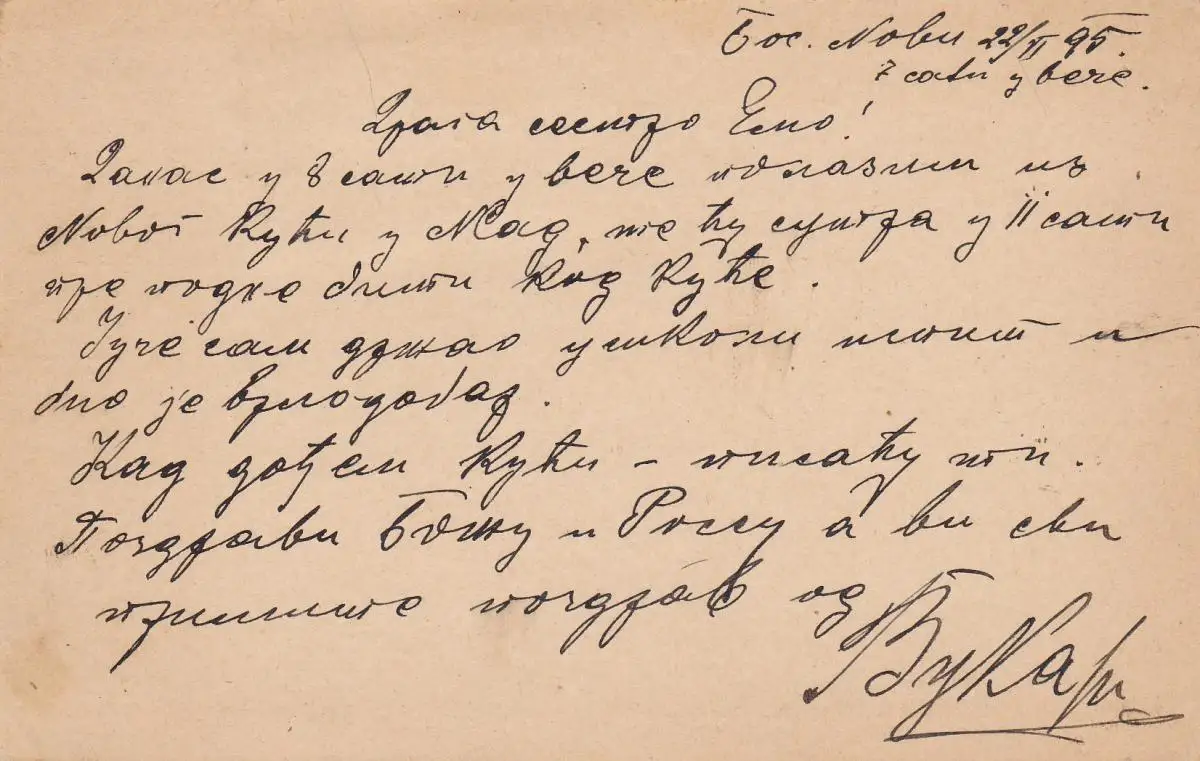 Бос. Нови 22/II 95.
7 сати у вече.
Драга сестро Емо!
Данас у 8 сати у вече полазим из
Новог кући у Мад, те ћу сутра у 11 сати
пре подне бити код куће.
Јуче сам држао у школи испит и
био је врло добар.
Кад дођем кући – писаћу ти.
Поздрави Божу и Россу а ви сви
примите поздрав од